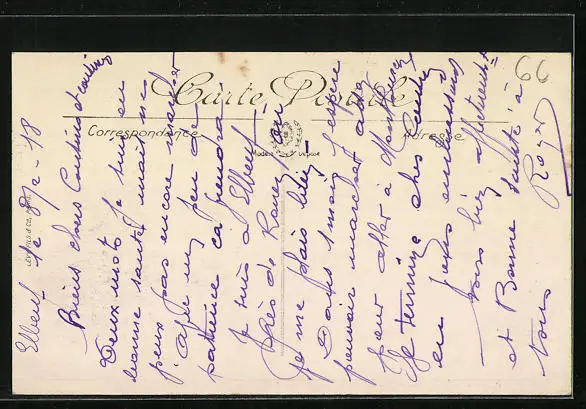 66
Carte Postale
Correspondance
Adresse
Elbeuf le 8/2-18
Biens chers Cousins et cousines
Deux mots je suis en
bonne santé mais ne
peux pas encore marcher
avec un peu de
patience ça viendra
Je suis à Elbeuf
près de Rouen où
je me plais bien
Dans 1 mois j'espère
pouvoir marcher
pour aller à
Je termine chers Cousins
en vous embrassant
tous bien affectueusement
et Bonne santé à
tous Roger